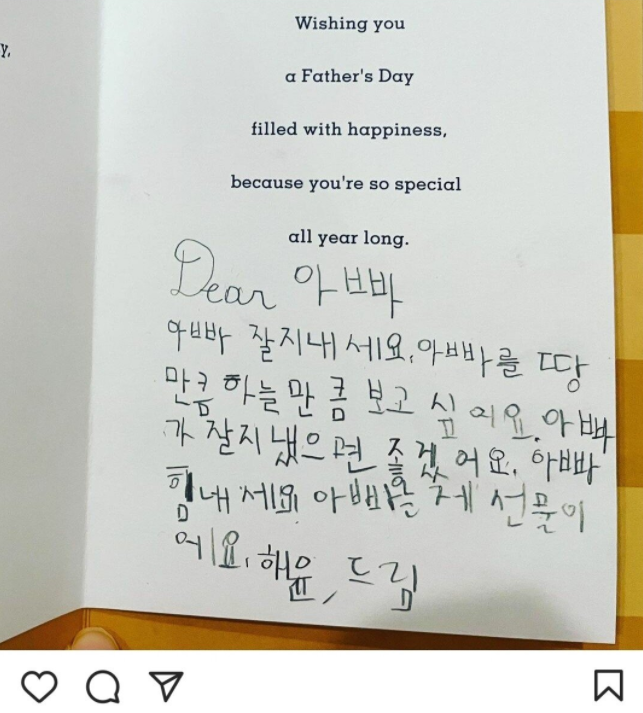 y,
Wishing you
a Father's Day
filled with happiness,
because you're so special
all year long.
Dear 아빠
아빠 잘지내세요. 아빠를 땅
만큼 하늘만큼 보고 싶어요. 아빠
가 잘지냈으면 좋겠어요. 아빠
힘내세요 아빠는 제 선물이
에요. 해윤, 드림